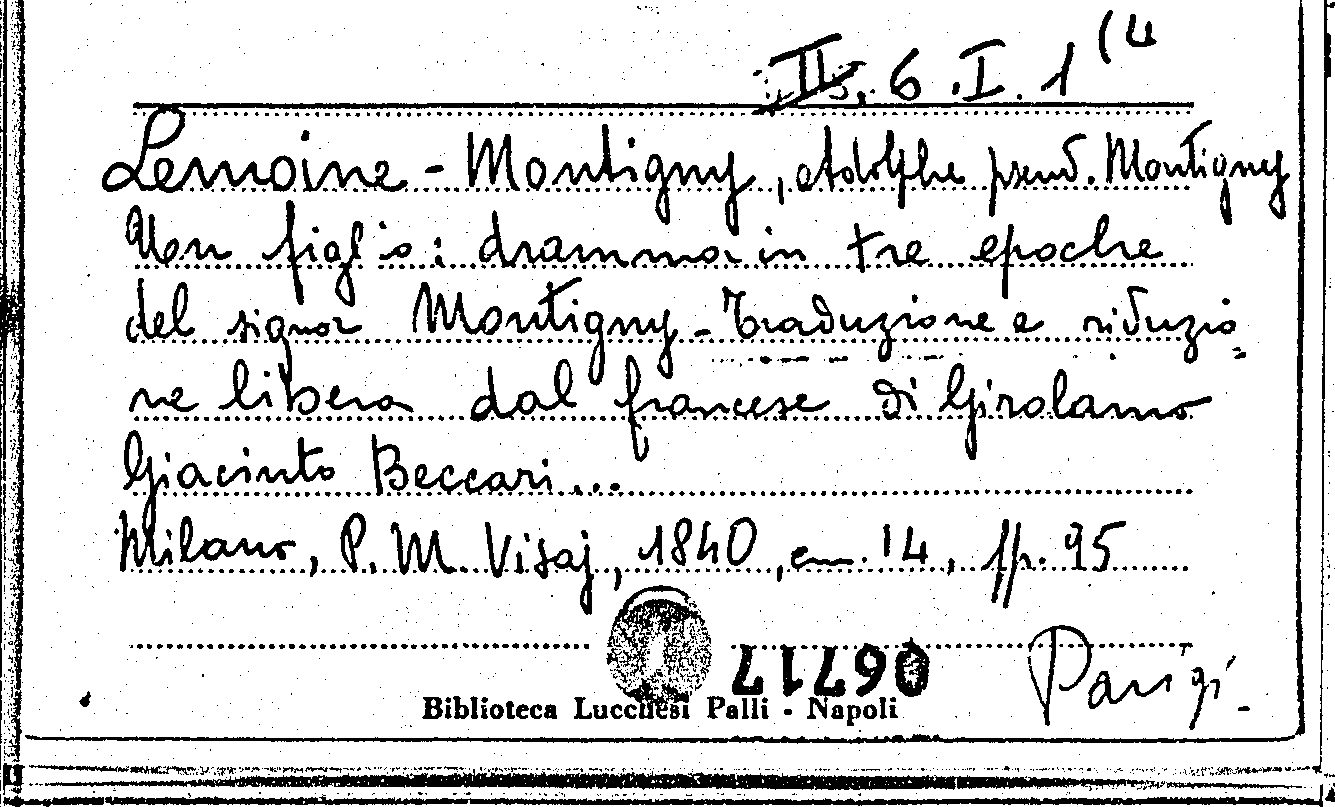 II. 6.I.1(4
Lemoine - Montigny, Adolphe pseud. Montigny
Un figlio: dramma in tre epoche
del signor Montigny - Traduzione e riduzio=
ne libera dal francese di Girolamo
Giacinto Beccari...
Milano, P. M. Visaj, 1840, cm. 14, pp. 95
06717
Parigi -
Biblioteca Lucchesi Palli - Napoli